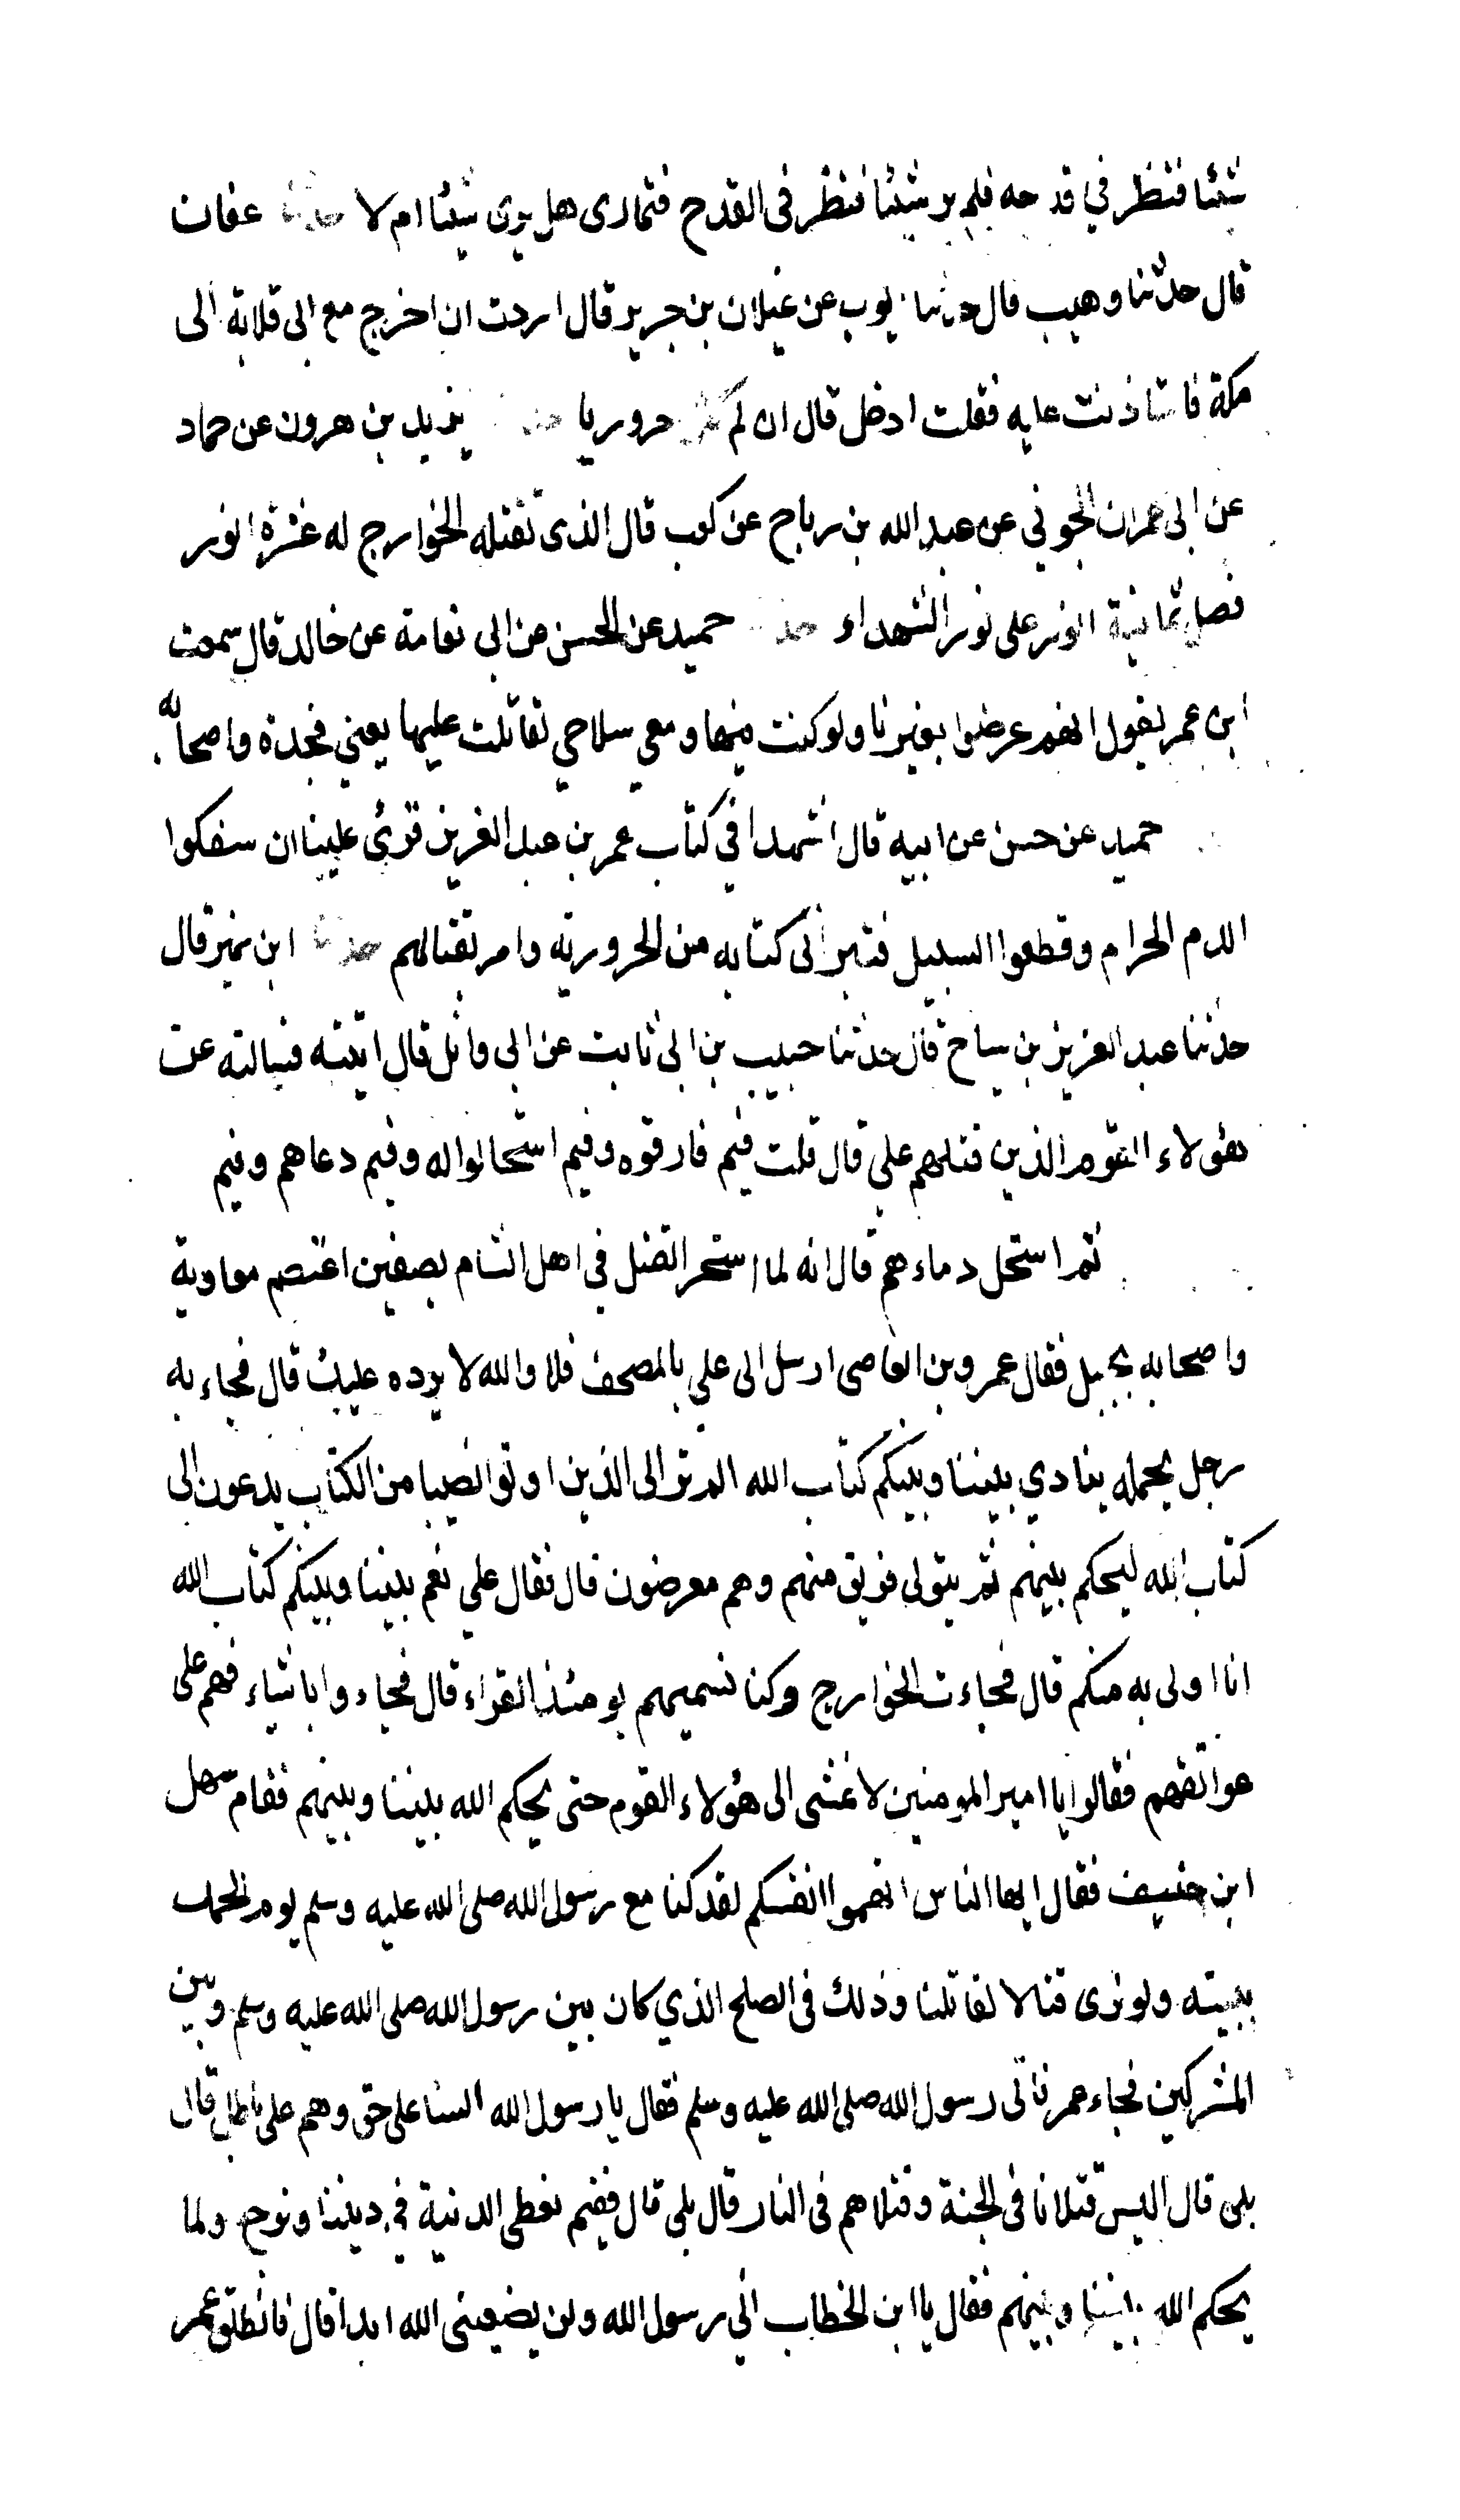 شيئا فنظر في قدحه فلم ير شيئا فنظر فى القدح فتمارى هل يرى شيئا ام لا حدثنا عفان
قال حدثنا وهيب قال حدثنا ايوب عن غيلان بن جرير قال اردت ان اخرج مع ابى قلابة الى
مكة فاستاذنت عليه فقلت ادخل قال ان لم تكن حروريا حدثنا يزيد بن هرون عن حماد
عن ابى عمران الجوني عن عبد الله بن رباح عن كعب قال الذى تقتله الخوارج له عشرة انور
فضل ثمانية انور على نور الشهداء حدثنا حميد عن الحسن عن ابى نعامة عن خالد قال سمعت
ابن عمر يقول انهم عرضوا بغيرنا ولو كنت فيها ومعي سلاحي لقاتلت عليها يعني نجدة واصحابه
حميد عن حسن عن ابيه قال اشهدا في كتاب عمر بن عبد العزيز قرئ علينا ان سفكوا
الدم الحرام وقطعوا السبيل فتبرأ فى كتابه من الحرورية وامر بقتالهم حدثنا ابن نمير قال
حدثنا عبد العزيز بن سياه قال حدثنا حبيب بن ابى ثابت عن ابى وائل قال اتيته فسالته عن
هؤلاء القوم الذين قتلهم علي قال قلت فيم فارقوه وفيم استحالوا له وفيم دعاهم وفيم
ثم استحل دماءهم قال انه لما استحر القتل فى اهل الشام بصفين اعتصم معاوية
واصحابه بجبل فقال عمرو بن العاصى ارسل الى علي بالمصحف فلا والله لا يرده عليك قال فجاء به
رجل يحمله ينادي بيننا وبينكم كتاب الله الم تر الى الذين اوتوا نصيبا من الكتاب يدعون الى
كتاب الله ليحكم بينهم ثم يتولى فريق منهم وهم معرضون قال فقال علي نعم بيننا وبينكم كتاب الله
انا اولى به منكم قال فجاءت الخوارج وكنا نسميهم يومئذ القراء قال فجاءوا باشياء فهم على
عواتقهم فقالوا يا امير المومنين لا نمشى الى هؤلاء القوم حتى يحكم الله بيننا وبينهم فقام سهل
ابن حنيف فقال ايها الناس اتهموا انفسكم لقد كنا مع رسول الله صلى الله عليه وسلم يوم الحد
يبيته ولو نرى قتالا لقاتلنا وذلك فى الصلح الذي كان بين رسول الله صلى الله عليه وسلم وبين
المشركين فجاء عمر فاتى رسول الله صلى الله عليه وسلم فقال يا رسول الله السنا على حق وهم على باطل قال
بلى قال اليس قتلانا فى الجنة وقتلاهم فى النار قال بلى قال ففيم نعطى الدنية في ديننا ونرجع ولما
يحكم الله بيننا وبينهم فقال يا ابن الخطاب انى رسول الله ولن يضيعنى الله ابدا قال فانطلق عمر